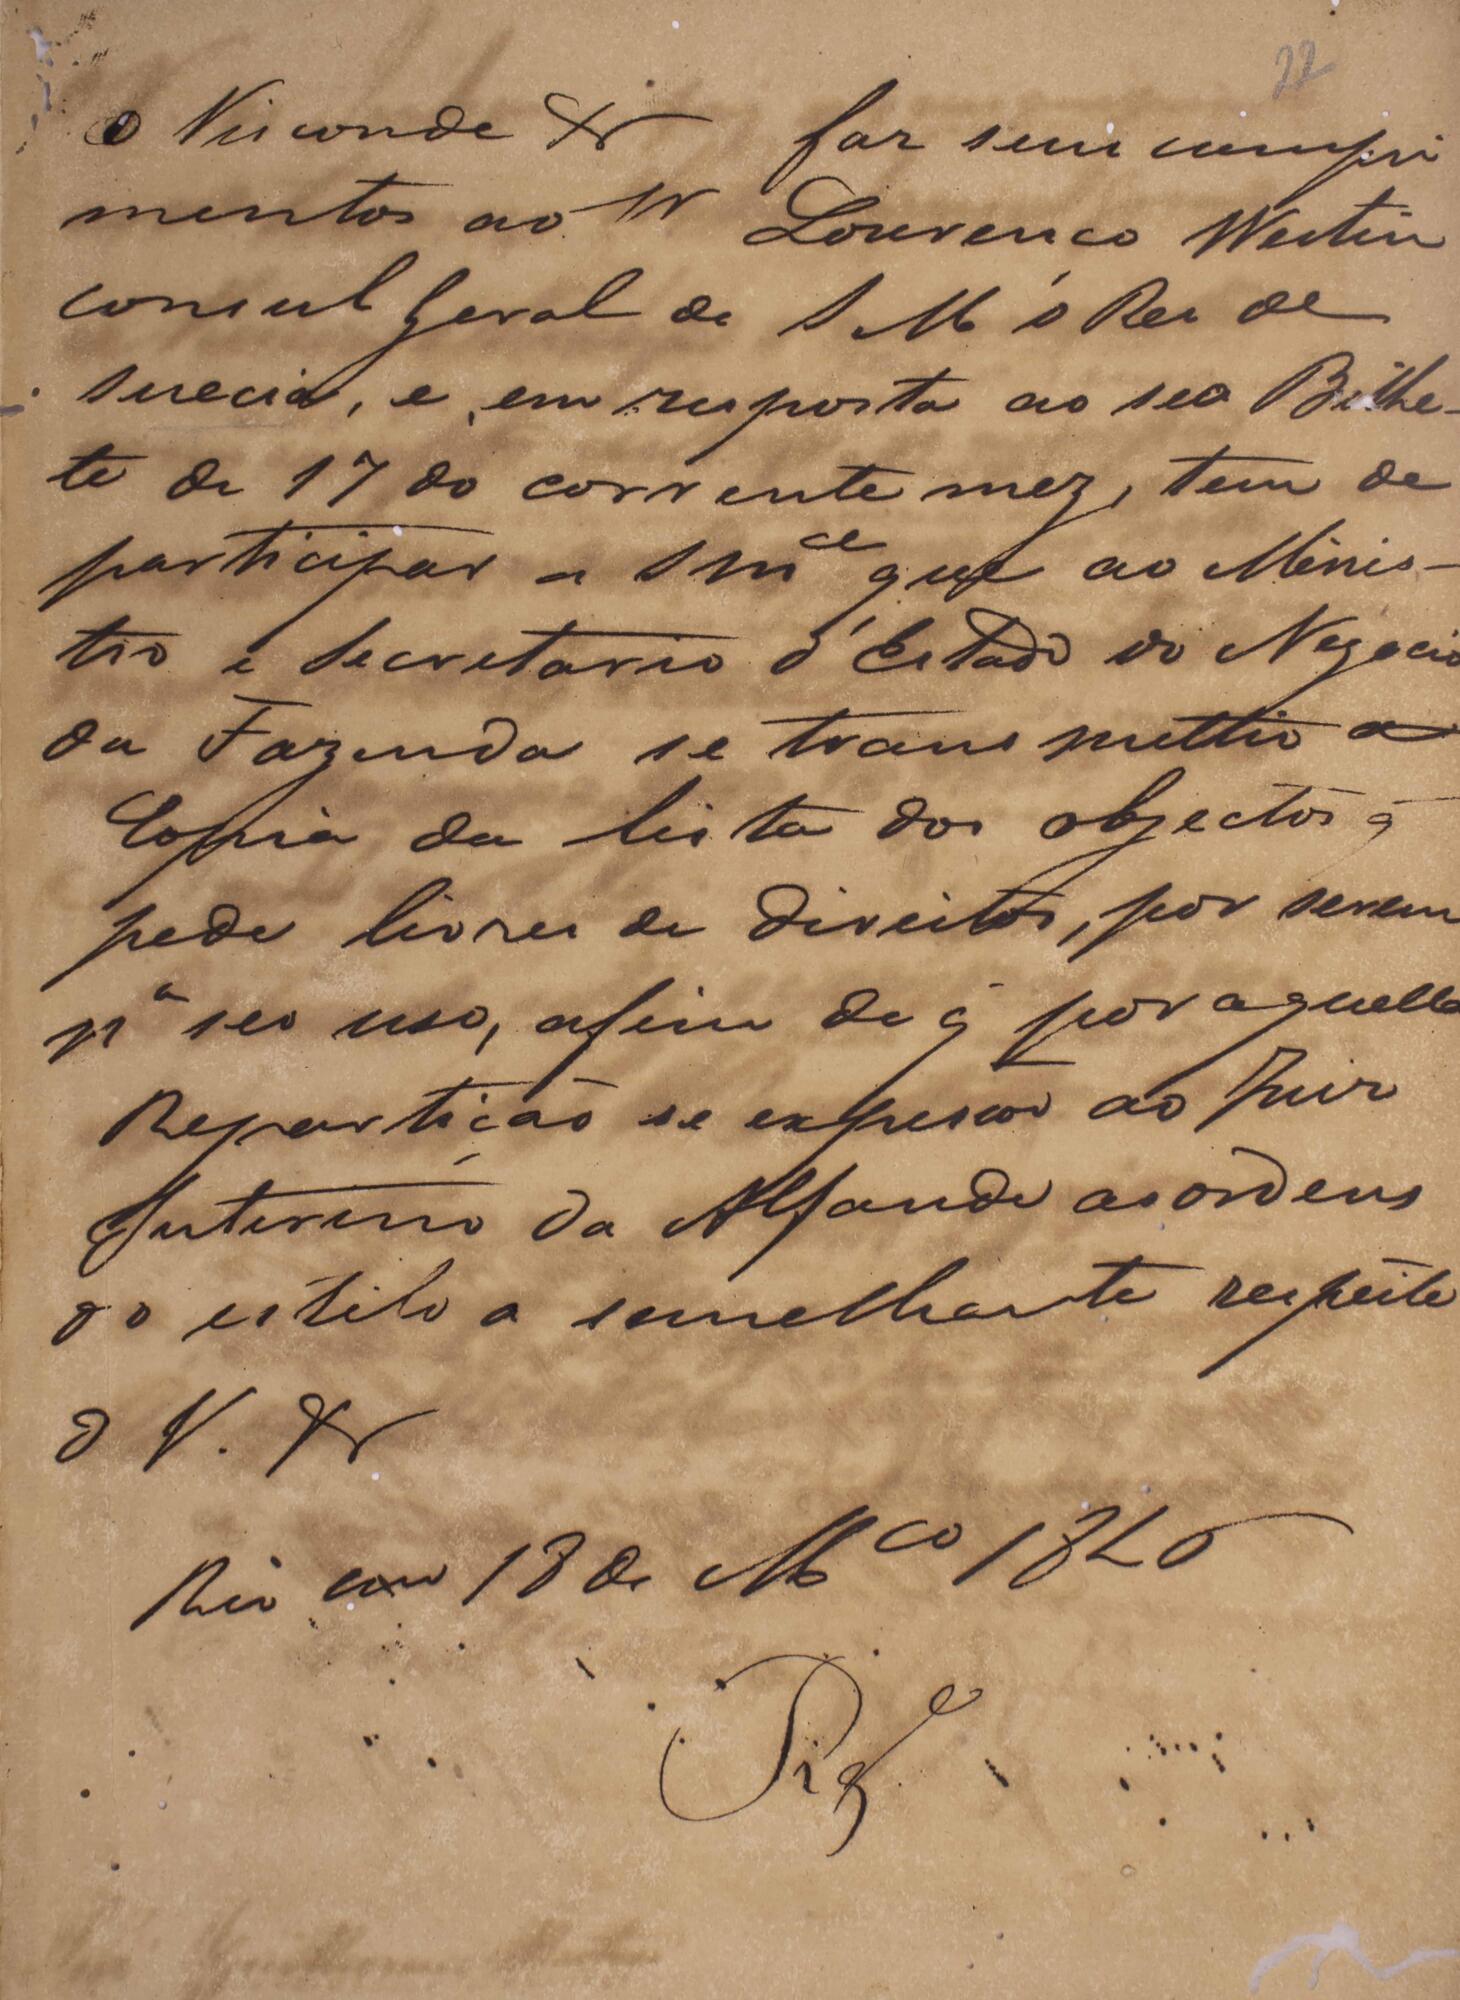 22
O Visconde &r faz seus compri
mentos ao Sr Lourenco Westin
consul geral de S M o Rei de
Suecia, e em resposta ao seo Bilhe-
te de 17 do corrente mez, tem de
participar a S Mce que ao Minis-
tro e Secretario d'Estado do Negocio
da Fazenda se transmettio a
Copia da lista dos objectos q̃
pede livres de direitos, por serem
pa seo uso, afim de q̃ por aquella
Repartição se expesão ao Juiz
Interino da Alfande as ordens
do estilo a semelhante respeito
O V. &r
Rio em 18 de Mço 1826